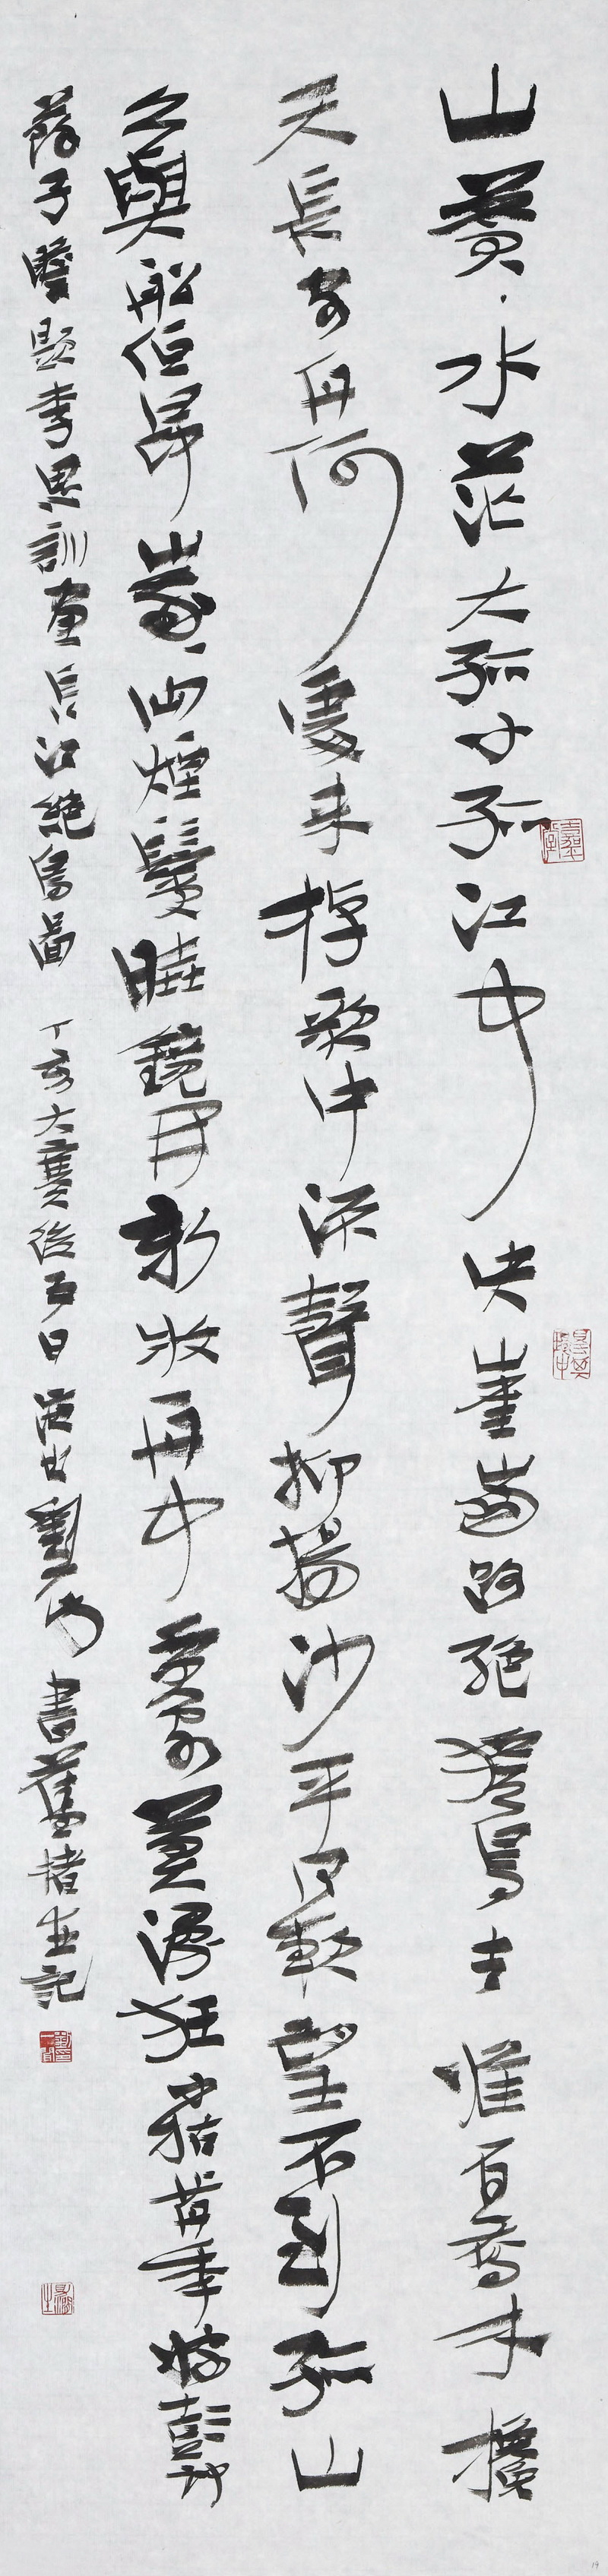 山蒼〻水茫大孤小孤江中央崖崩路絕猿鳥去惟有喬木攙
天長客舟何處來棹歌中流聲抑揚沙平風軟望不到孤山
久與船低昂峩〻兩煙鬟曉鏡開新妝舟中賈客莫漫狂小姑前年嫁彭郎
蘇子瞻題李思訓畫長江絕島圖 丁亥大寒後五日 海上劉一聞 書舊楮並記